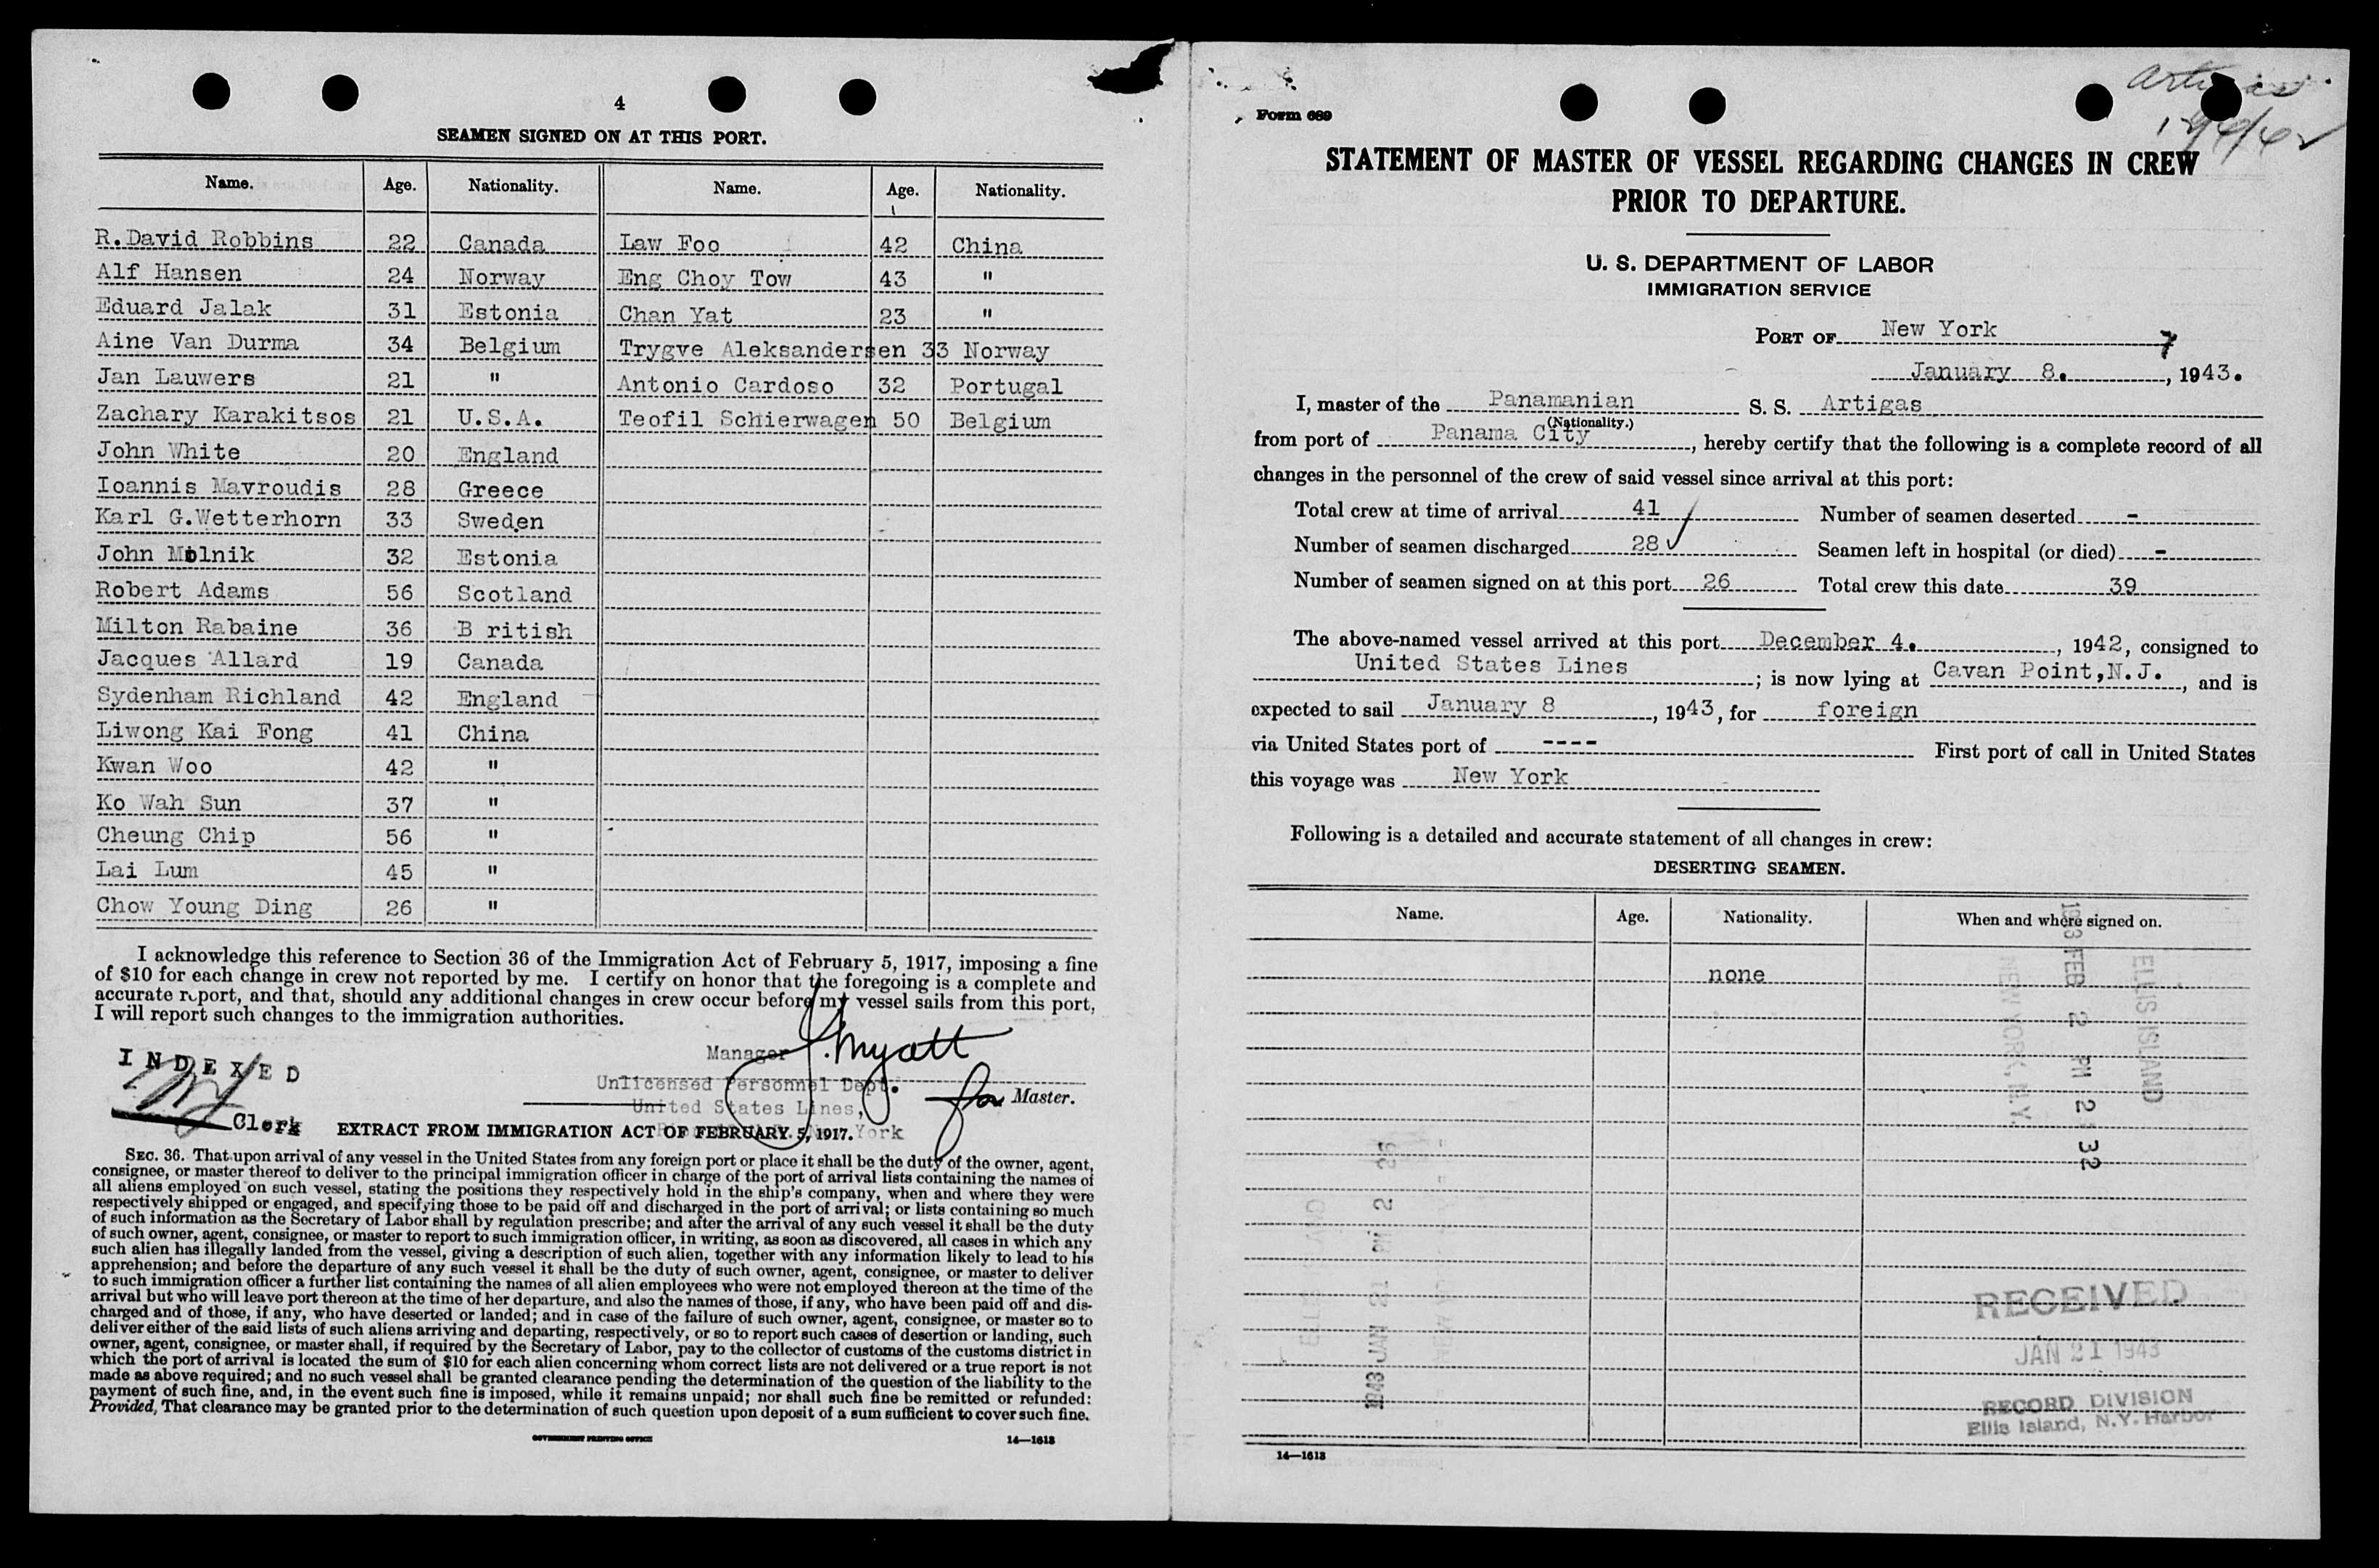 4
SEAMEN SIGNED ON AT THIS PORT.
Name. Age. Nationality. Name. Age. Nationality.
R.David Robbins 22 Canada Law Foo 42 China
Alf Hansen 24 Norway Eng Choy Tow 43 "
Eduard Jalak 31 Estonia Chan Yat 23 "
Aine Van Durma 34 Belgium Trygve Aleksandersen 33 Norway
Jan Lauwers 21 " Antonio Cardoso 32 Portugal
Zachary Karakitsos 21 U.S.A. Teofil Schierwagen 50 Belgium
John White 20 England
Ioannis Mavroudis 28 Greece
Karl G.Wetterhorn 33 Sweden
John Molnik 32 Estonia
Robert Adams 56 Scotland
Milton Rabaine 36 B ritish
Jacques Allard 19 Canada
Sydenham Richland 42 England
Liwong Kai Fong 41 China
Kwan Woo 42 "
Ko Wah Sun 37 "
Cheung Chip 56 "
Lai Lum 45 "
Chow Young Ding 26 "
I acknowledge this reference to Section 36 of the Immigration Act of February 5, 1917, imposing a fine
of $10 for each change in crew not reported by me. I certify on honor that the foregoing is a complete and
accurate report, and that, should any additional changes in crew occur before my vessel sails from this port,
I will report such changes to the immigration authorities.
INDEXED
Clerk
Manager J. Myatt
Unlicensed Personnel Dept.
for Master.
United States Lines,
York
EXTRACT FROM IMMIGRATION ACT OF FEBRUARY 5, 1917.
SEC. 36. That upon arrival of any vessel in the United States from any foreign port or place it shall be the duty of the owner, agent,
consignee, or master thereof to deliver to the principal immigration officer in charge of the port of arrival lists containing the names of
all aliens employed on such vessel, stating the positions they respectively hold in the ship's company, when and where they were
respectively shipped or engaged, and specifying those to be paid off and discharged in the port of arrival; or lists containing so much
of such information as the Secretary of Labor shall by regulation prescribe; and after the arrival of any such vessel it shall be the duty
of such owner, agent, consignee, or master to report to such immigration officer, in writing, as soon as discovered, all cases in which any
such alien has illegally landed from the vessel, giving a description of such alien, together with any information likely to lead to his
apprehension; and before the departure of any such vessel it shall be the duty of such owner, agent, consignee, or master to deliver
to such immigration officer a further list containing the names of all alien employees who were not employed thereon at the time of the
arrival but who will leave port thereon at the time of her departure, and also the names of those, if any, who have been paid off and dis-
charged and of those, if any, who have deserted or landed; and in case of the failure of such owner, agent, consignee, or master so to
deliver either of the said lists of such aliens arriving and departing, respectively, or so to report such cases of desertion or landing, such
owner, agent, consignee, or master shall, if required by the Secretary of Labor, pay to the collector of customs of the customs district in
which the port of arrival is located the sum of $10 for each alien concerning whom correct lists are not delivered or a true report is not
made as above required; and no such vessel shall be granted clearance pending the determination of the question of the liability to the
payment of such fine, and, in the event such fine is imposed, while it remains unpaid; nor shall such fine be remitted or refunded:
Provided, That clearance may be granted prior to the determination of such question upon deposit of a sum sufficient to cover such fine.
GOVERNMENT PRINTING OFFICE 14—1613
Artigas
Form 689
STATEMENT OF MASTER OF VESSEL REGARDING CHANGES IN CREW
PRIOR TO DEPARTURE.
U. S. DEPARTMENT OF LABOR
IMMIGRATION SERVICE
PORT OF New York
7
January 8. , 1943.
I, master of the Panamanian S. S. Artigas
(Nationality.)
from port of Panama City, hereby certify that the following is a complete record of all
changes in the personnel of the crew of said vessel since arrival at this port:
Total crew at time of arrival 41 Number of seamen deserted -
Number of seamen discharged 28 Seamen left in hospital (or died) -
Number of seamen signed on at this port 26 Total crew this date 39
The above-named vessel arrived at this port December 4. , 1942, consigned to
United States Lines ; is now lying at Cavan Point,N.J. , and is
expected to sail January 8 , 1943, for foreign
via United States port of ---- First port of call in United States
this voyage was New York
Following is a detailed and accurate statement of all changes in crew:
DESERTING SEAMEN.
Name. Age. Nationality. When and where signed on.
none
1943 FEB 2 PM 2 32
ELLIS ISLAND
NEW YORK, N.Y.
1943 JAN 21 PM 2 26
RECEIVED
JAN 21 1943
RECORD DIVISION
Ellis Island, N.Y. Harbor
14—1613